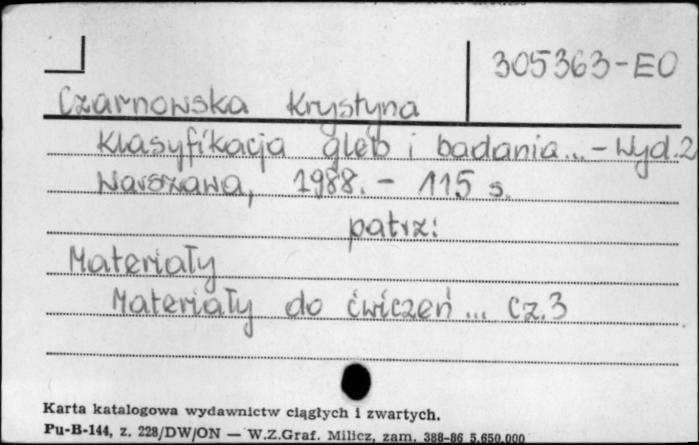 305363-EO
Czarnowska Krystyna
Klasyfikacja gleb i badania... - Wyd. 2
Warszawa, 1988. - 115 s.
patrz:
Materiały
Materiały do ćwiczeń ... Cz. 3
Karta katalogowa wydawnictw ciągłych i zwartych.
Pu-B-144, z. 228/DW/ON — W.Z.Graf. Milicz, zam. 388-86 5.650.000